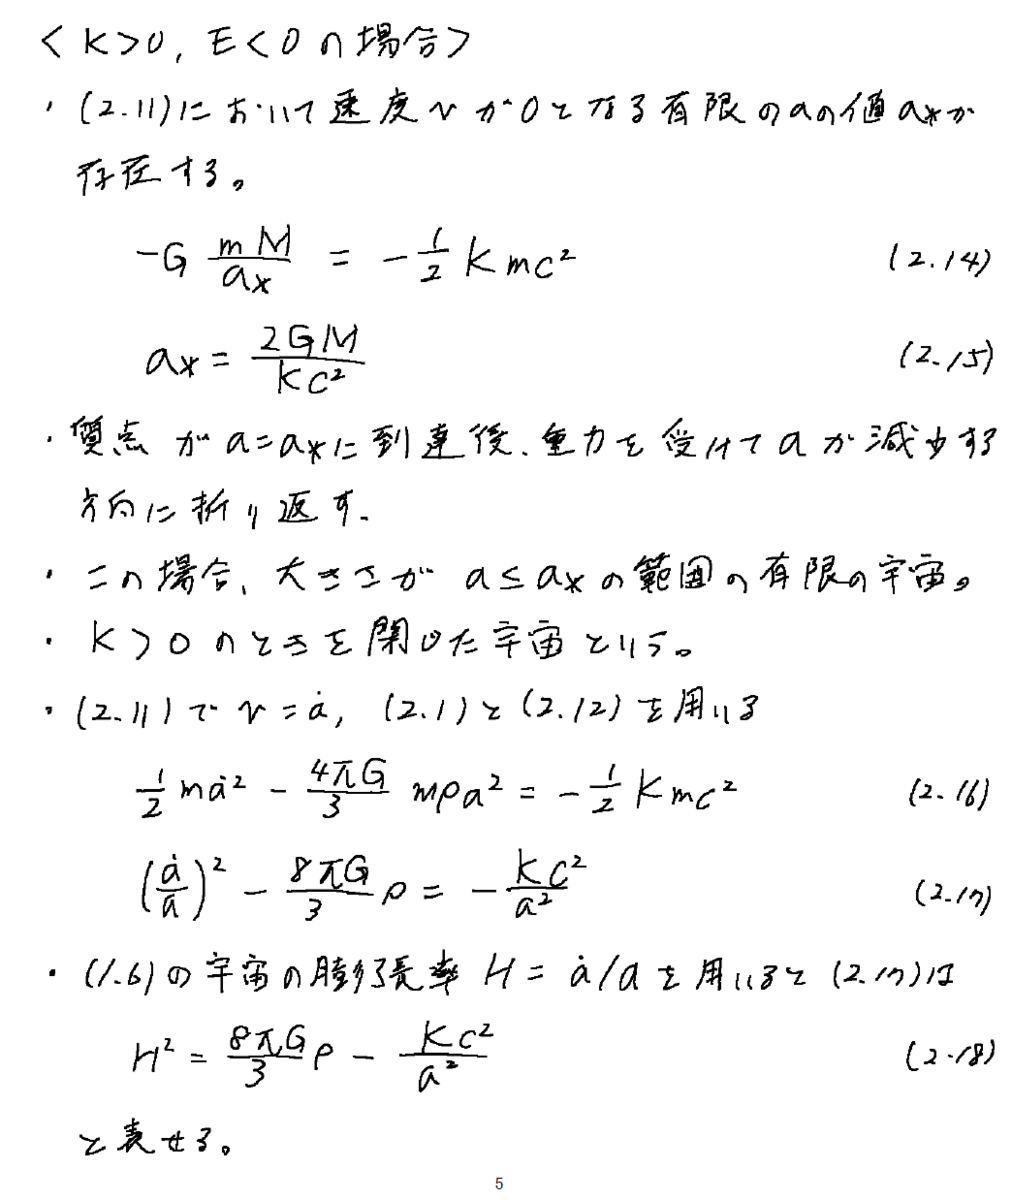 < K>0, E<0 の場合>
・(2.11)において速度vが0となる有限のaの値a*が
存在する。
-G mM/a* = -1/2 Kmc² (2.14)
a* = 2GM/Kc² (2.15)
・質点がa=a*に到達後、重力を受けてaが減少する
方向に折り返す.
・この場合、大きさが a≤a*の範囲の有限の宇宙。
・K>0のときを閉じた宇宙という。
・(2.11)でv=ȧ, (2.1)と(2.12)を用いる
1/2 mȧ² - 4πG/3 mρa² = -1/2 Kmc² (2.16)
(ȧ/a)² - 8πG/3 ρ = -Kc²/a² (2.17)
・(1.6)の宇宙の膨張率 H=ȧ/aを用いると(2.17)は
H² = 8πG/3 ρ - Kc²/a² (2.18)
と表せる。
5